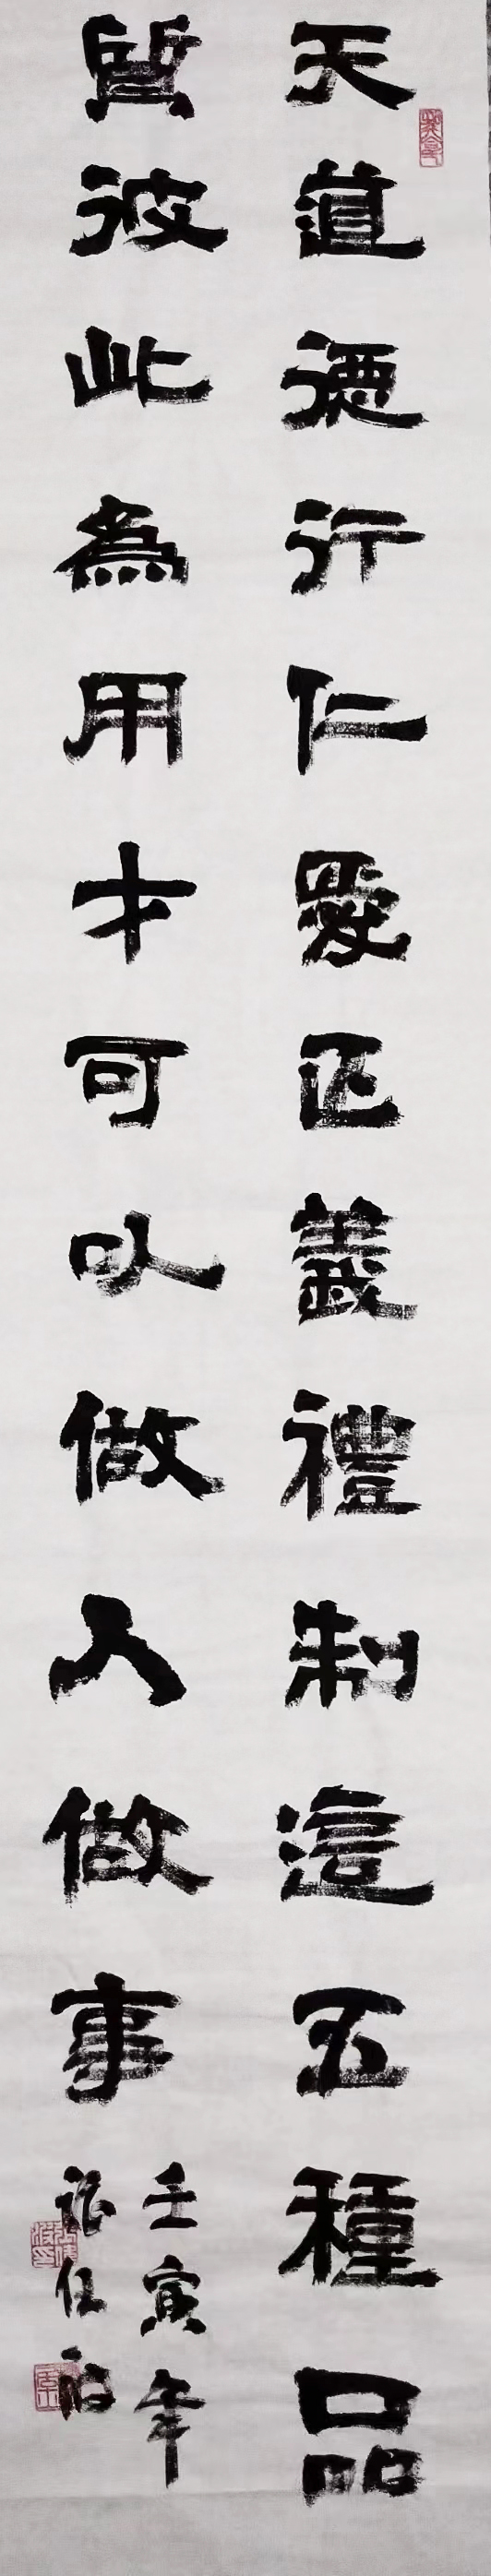 天道德行仁愛正義禮制這五種品
質彼此為用才可以做人做事
壬寅年